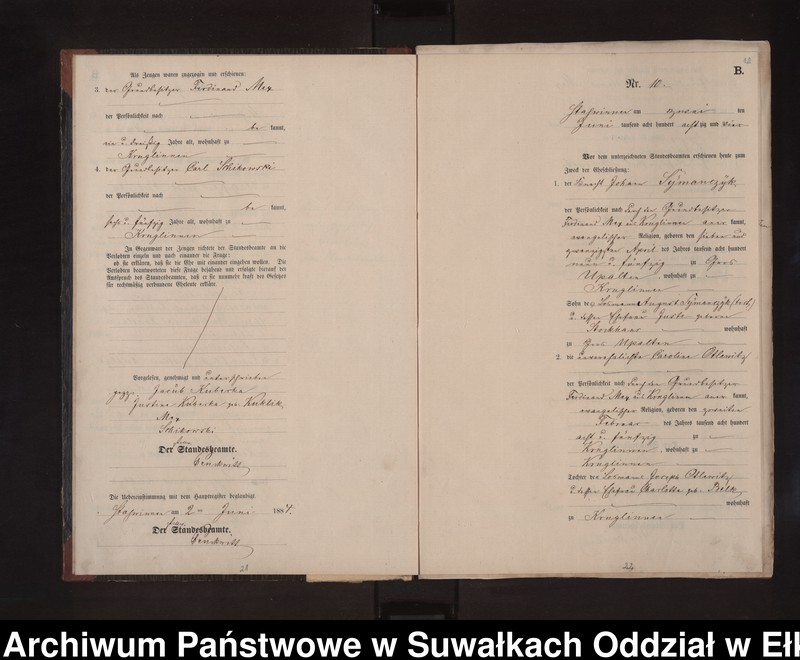 Als Zeugen waren zugezogen und erschienen:
3. der Grundbesitzer Ferdinand Max
der Persönlichkeit nach
be kannt,
vier u. dreißig Jahre alt, wohnhaft zu
Kruglinnen
4. der Grundbesitzer Carl Schikowski
der Persönlichkeit nach
be kannt,
sechs u. fünfzig Jahre alt, wohnhaft zu
Kruglinnen
In Gegenwart der Zeugen richtete der Standesbeamte an die
Verlobten einzeln und nach einander die Frage:
ob sie erklären, daß sie die Ehe mit einander eingehen wollen. Die
Verlobten beantworteten diese Frage bejahend und erfolgte hierauf der
Ausspruch des Standesbeamten, daß er sie nunmehr kraft des Gesetzes
für rechtmäßig verbundene Eheleute erkläre.
Vorgelesen, genehmigt und unterschrieben
gez. Jacob Kuberka
Justine Kuberka geb. Kuklik
Max
Schikowski
Der Standesbeamte.
Die Uebereinstimmung mit dem Hauptregister beglaubigt.
am 2ten Juni 1884.
Der Standesbeamte.
21
B.
Nr. 10.
am zwei ten
Juni tausend acht hundert achtzig und vier
Vor dem unterzeichneten Standesbeamten erschienen heute zum
Zweck der Eheschließung:
1. der Knecht Johann Symanczyk
der Persönlichkeit nach durch den Grundbesitzer
Ferdinand Max aus Kruglinnen aner kannt,
evangelischer Religion, geboren den sieben und
zwanzigsten April des Jahres tausend acht hundert
neun u. fünfzig zu Gross
Upalten, wohnhaft zu
Kruglinnen
Sohn des Losmann August Symanczyk
u. dessen Ehefrau Juste geborene
Stockhaus wohnhaft
zu Gross Upalten
2. die unverehelichte Caroline Ollanitz
der Persönlichkeit nach durch den Grundbesitzer
Ferdinand Max aus Kruglinnen aner kannt,
evangelischer Religion, geboren den zweiten
Februar des Jahres tausend acht hundert
acht u. fünfzig zu
Kruglinnen, wohnhaft zu
Kruglinnen
Tochter des Losmann Joseph Ollanitz
u. dessen Ehefrau Charlotte geb.
wohnhaft
zu Kruglinnen
22
Archiwum Państwowe w Suwałkach Oddział w Ełk